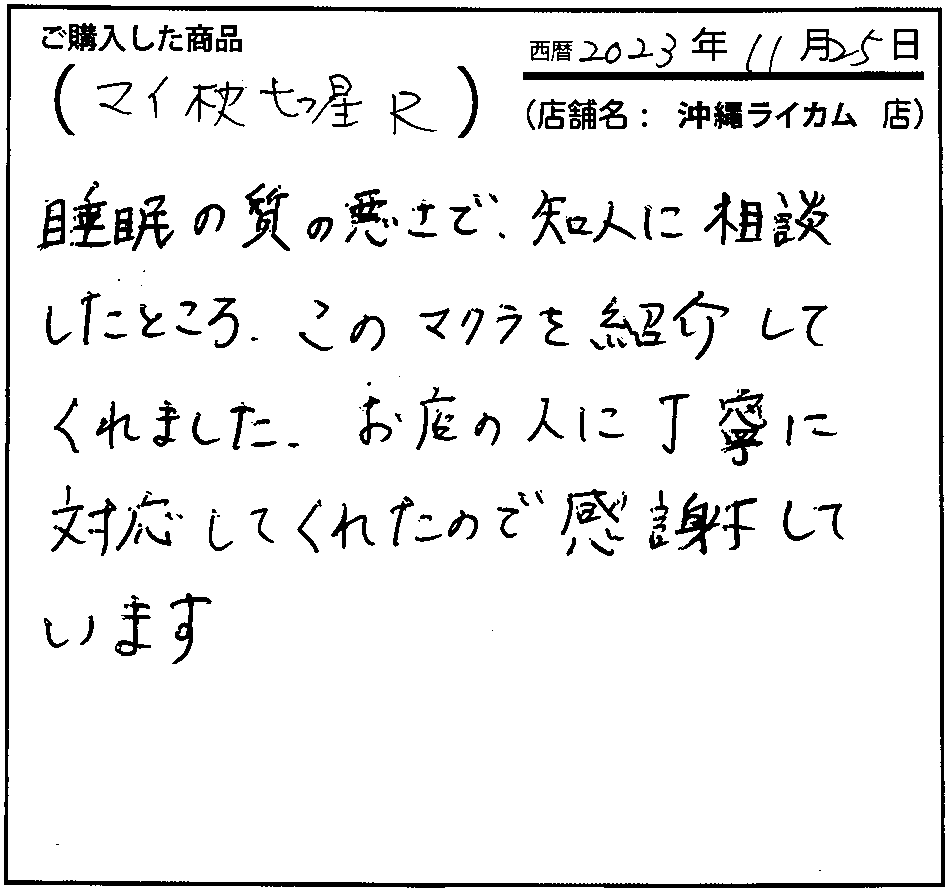 ご購入した商品
西暦2023年11月25日
(マイ枕七つ星R)
(店舗名： 沖縄ライカム 店)
睡眠の質の悪さで、知人に相談
したところ、このマクラを紹介して
くれました。お店の人に丁寧に
対応してくれたので感謝して
います